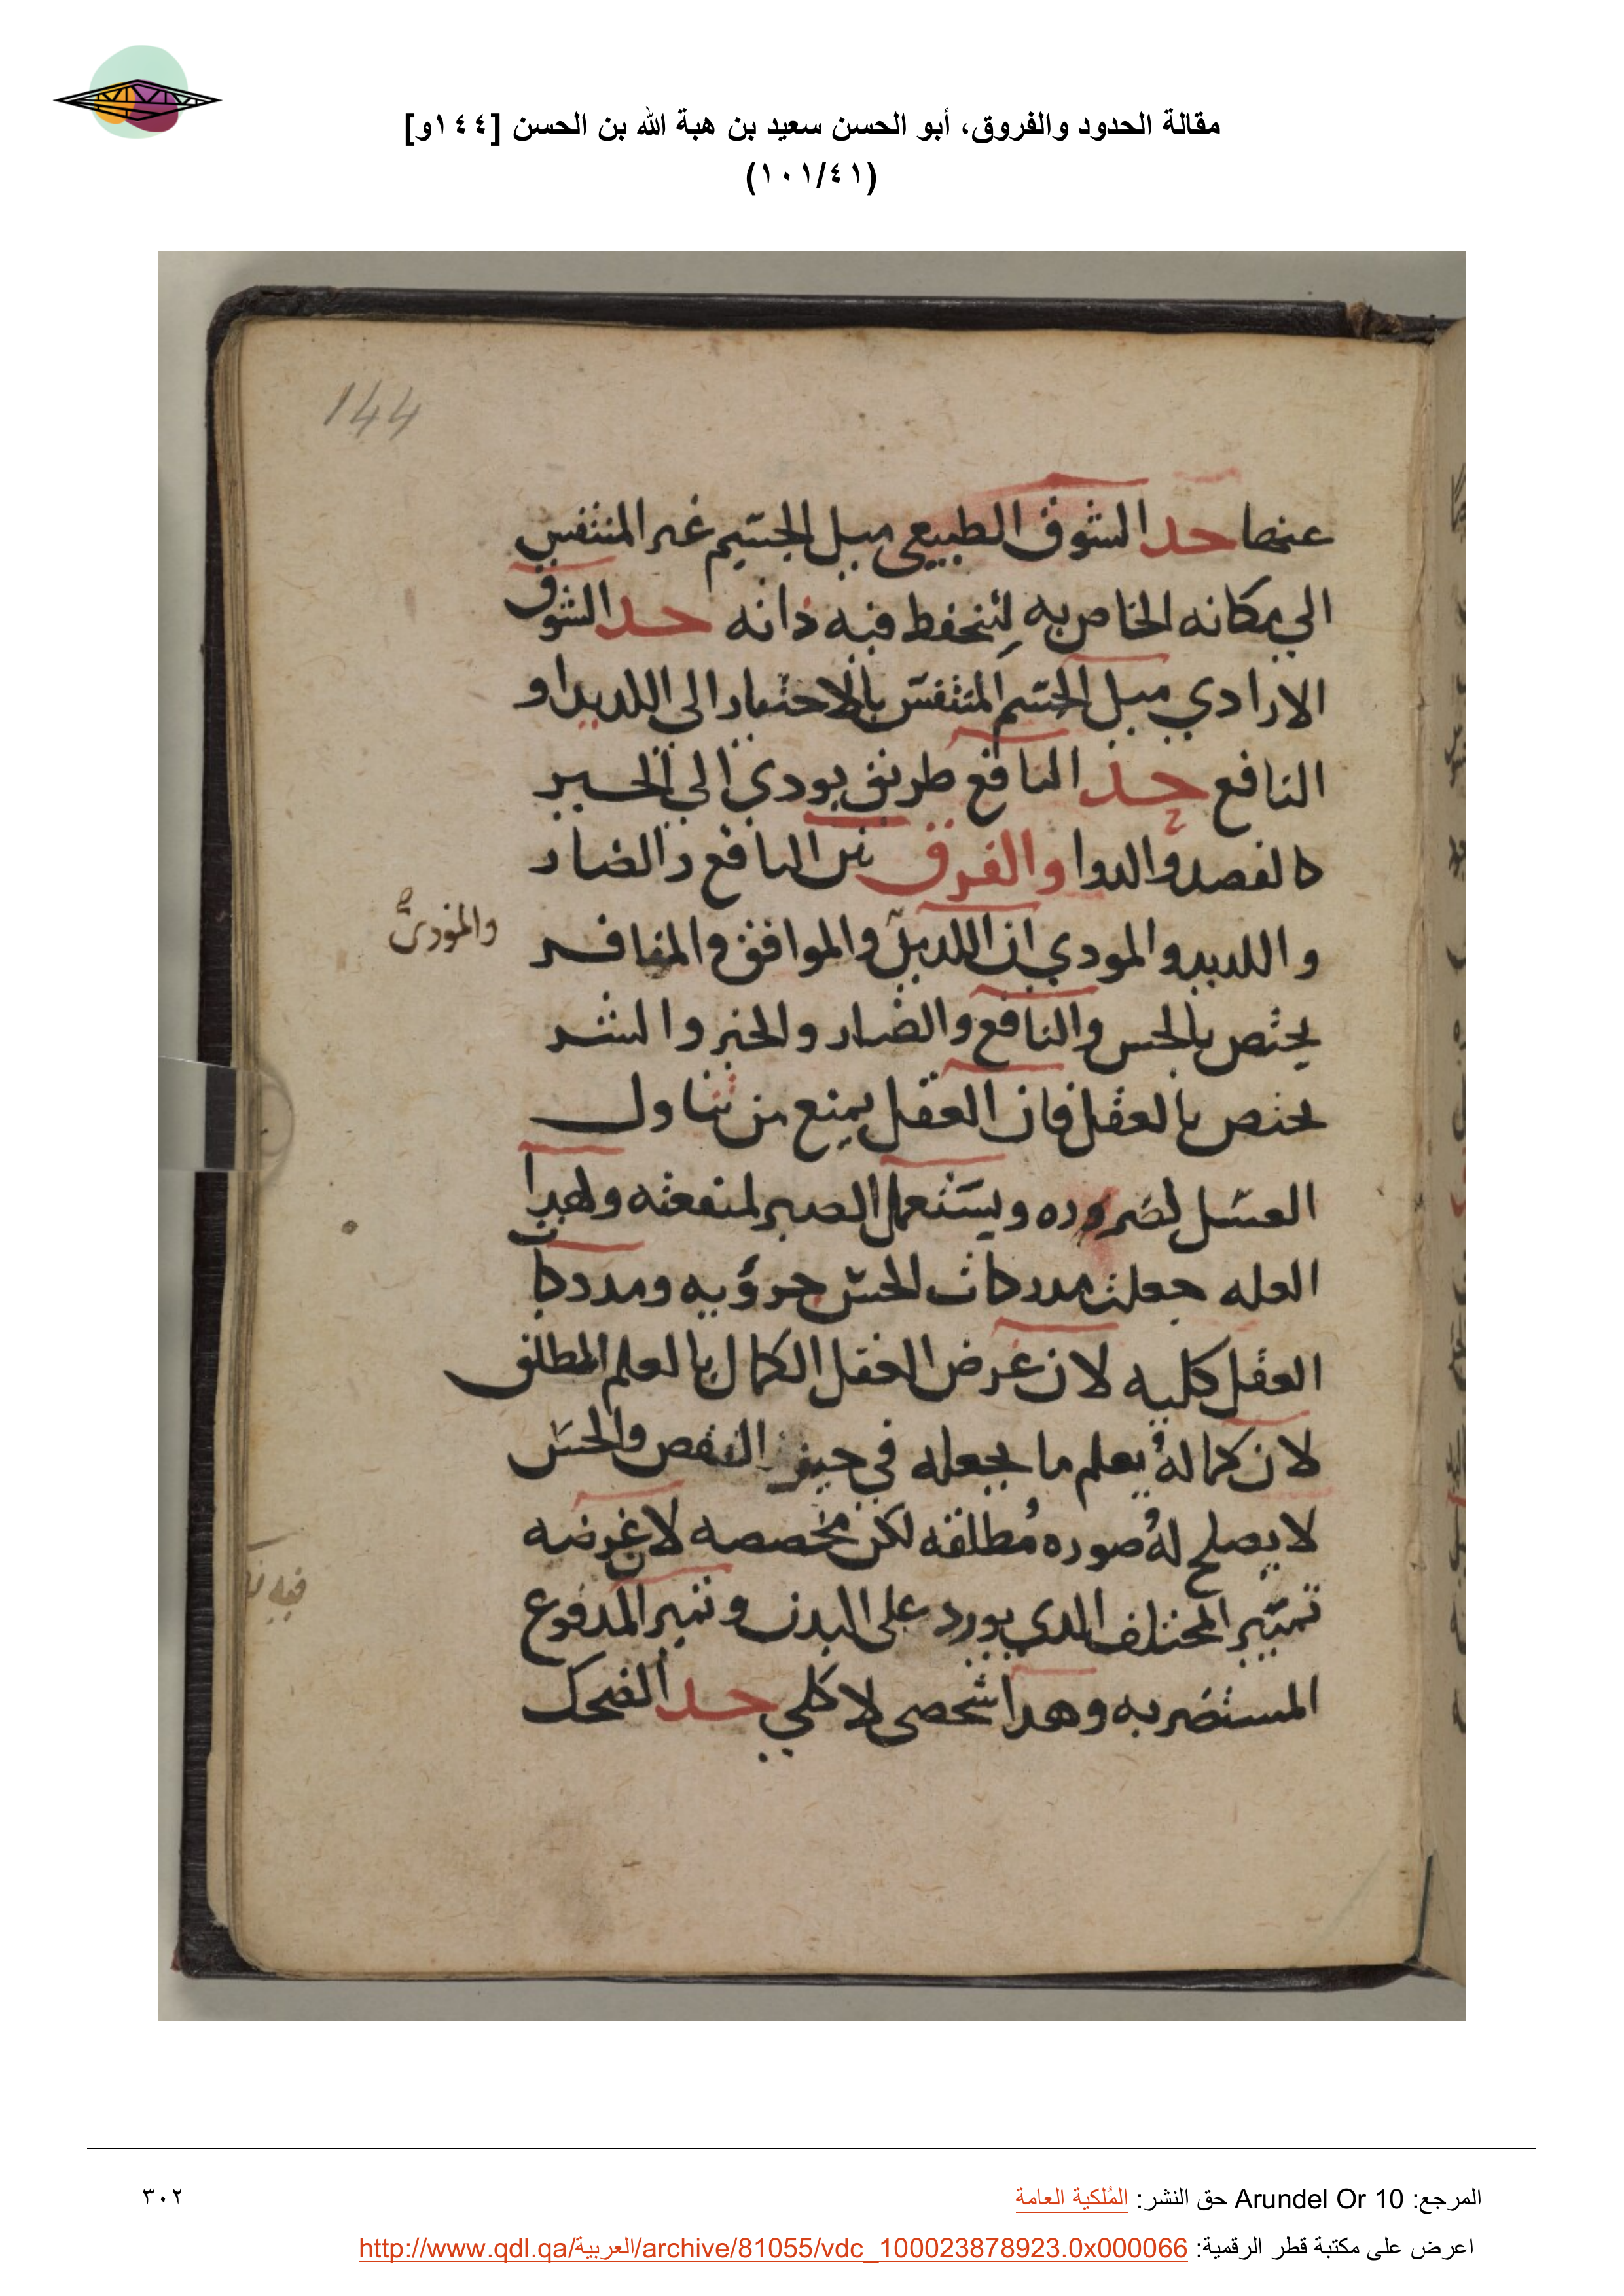 مقالة الحدود والفروق، أبو الحسن سعيد بن هبة الله بن الحسن [١٤٤و]
(١٠١/٤١)
144
عنها حد الشوق الطبيعي ميل الجسيم غير المتنفس
الي مكانه الخاص به لينحفظ فيه ذاته حد الشوق
الارادي ميل الجسم المتنفس بالاختيار الى اللديد او
النافع حد النافع طريق يودي الي الخير
كالفصد والدوا والفرق بين النافع والضار
واللديد والمودي ان اللديد والموافق والمنافر
والموذى
يختص بالحس والنافع والضار والخير والشر
يختص بالعقل فان العقل يمنع من تناول
العسل لضروره ويستعمل الصبر لمنفعته ولهدا
العله جعلت مدركات الحس جزويه ومدركات
العقل كليه لان غرض العقل الكمال بالعلم المطلق
لان كماله يعلم ما يجعله في حيز النقص والحس
لا يصلح له صوره مطلقه لكن مخصصه لا غرضه
تمييز المختلف الدي يورد على البدن وتميز المدفوع
فيه
المستضر به وهدا شخصي لا كلي حد الضحك
المرجع: Arundel Or 10 حق النشر: المُلكية العامة
٣٠٢
اعرض على مكتبة قطر الرقمية: http://www.qdl.qa/العربية/archive/81055/vdc_100023878923.0x000066